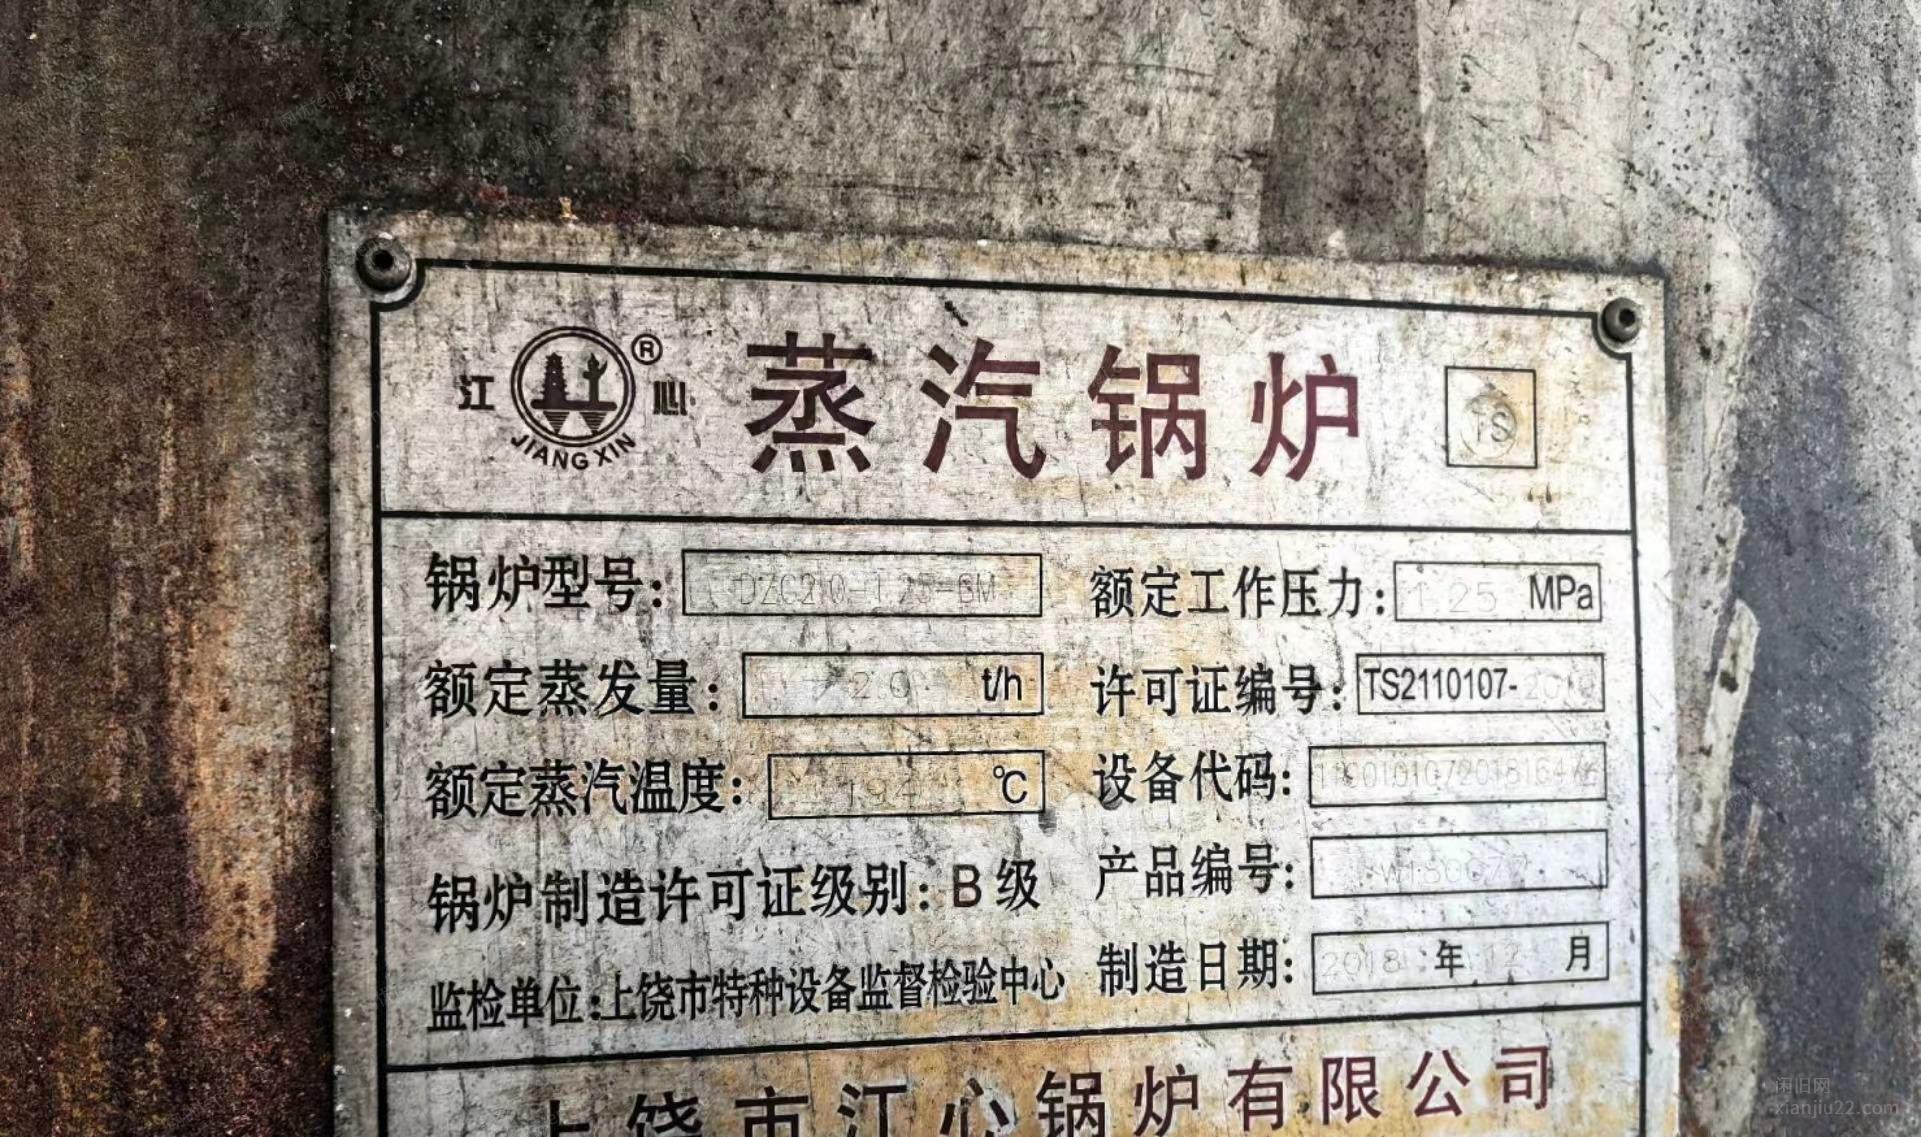 江 心 ® 蒸汽锅炉 TS
JIANGXIN
锅炉型号: 额定工作压力: 1.25 MPa
额定蒸发量: 2.0 t/h 许可证编号: TS2110107-
额定蒸汽温度: 194 ℃ 设备代码:
锅炉制造许可证级别: B级 产品编号:
监检单位:上饶市特种设备监督检验中心 制造日期: 2018 年 12 月
上饶市江心锅炉有限公司
闲旧网
xianjiu22.com